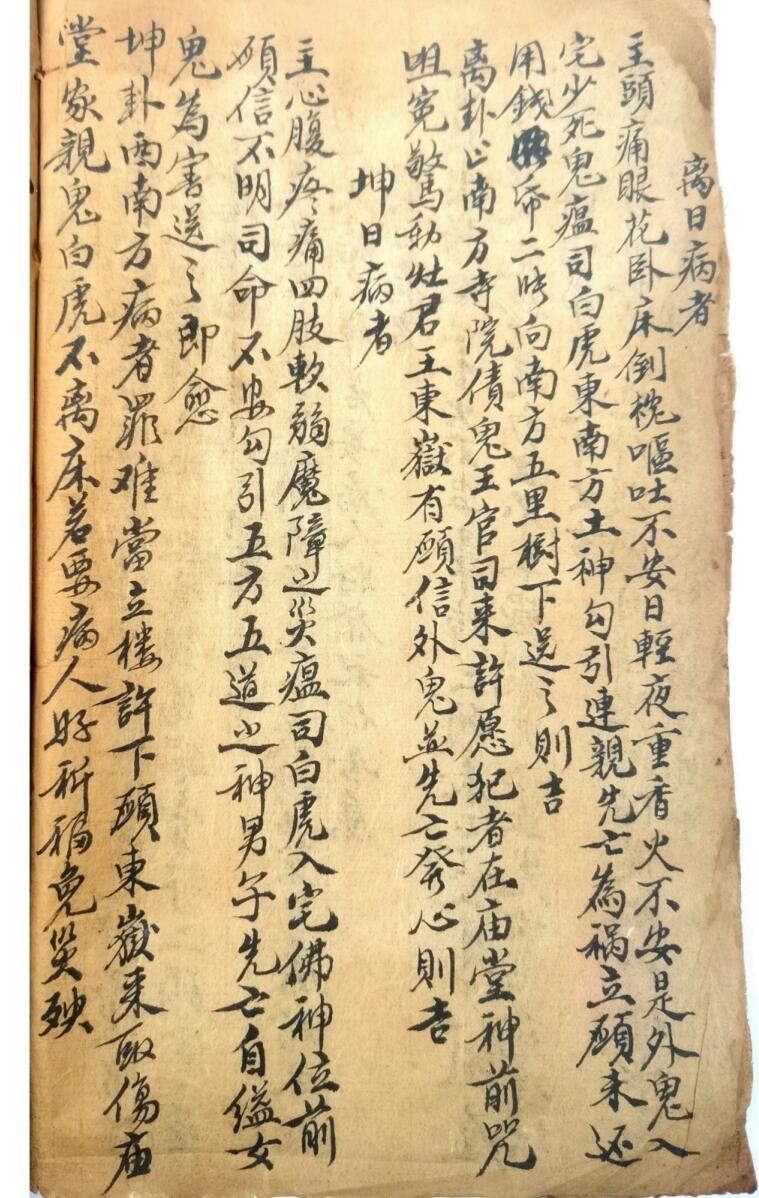 离日病者
主頭痛眼花卧床倒枕嘔吐不安日輕夜重香火不安是外鬼入
宅少死鬼瘟司白虎東南方土神勾引連親先亡為禍立願未还
用錢帋二帋向南方五里樹下送之則吉
离卦正南方寺院債鬼王官司来許愿犯者在庙堂神前咒
咀冤驚動灶君王東嶽有願信外鬼並先亡發心則吉
坤日病者
主心腹疼痛四肢軟弱魔障之災瘟司白虎入宅佛神位前
願信不明司命不安勾引五方五道之神男午先亡自缢女
鬼為害送之即愈
坤卦西南方病者罪难當立樓許下願東嶽来取傷庙
堂家親鬼白虎不离床若要病人好祈福免災殃